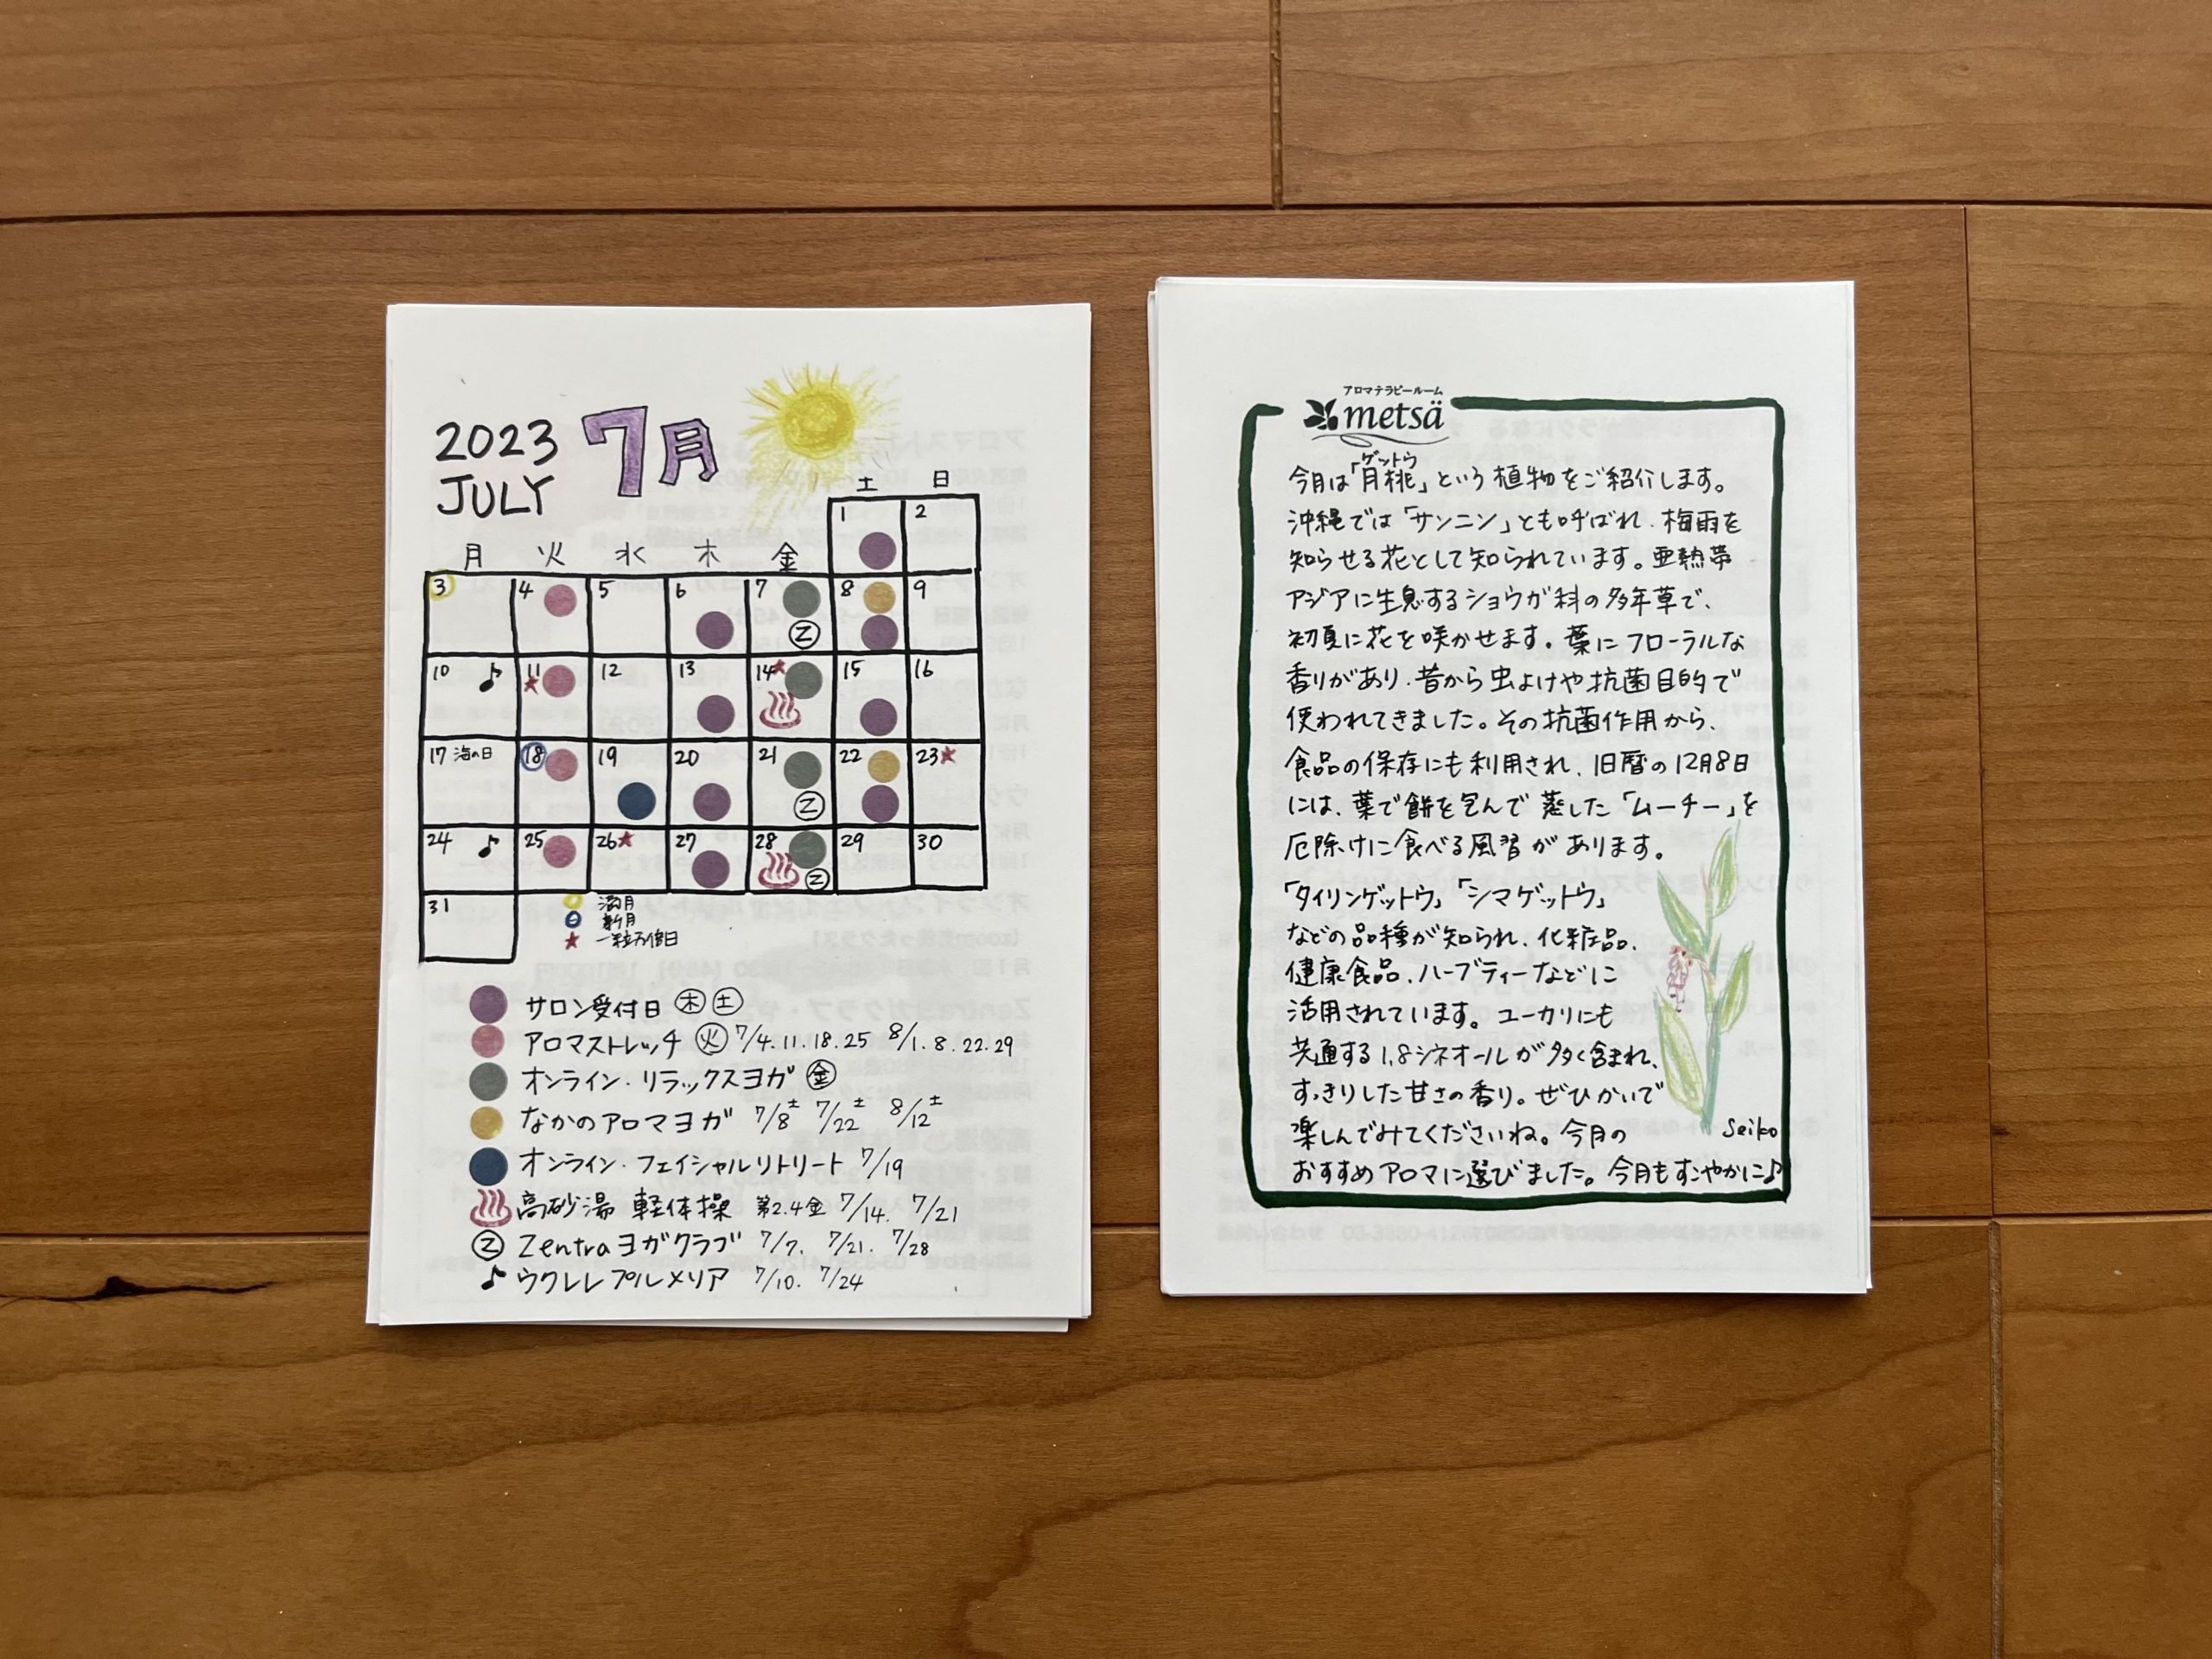 2023 7月
JULY
土 日
月 火 水 木 金
1 2
3 4 5 6 7 8 9
Z
10 11 12 13 14 15 16
17 海の日 18 19 20 21 22 23
Z
24 25 26 27 28 29 30
Z
31
満月
新月
一粒万倍日
サロン受付日 木 土
アロマストレッチ 火 7/4.11.18.25 8/1.8.22.29
オンライン・リラックスヨガ 金
なかのアロマヨガ 7/8土 7/22土 8/12土
オンライン・フェイシャルリトリート 7/19
高砂湯 軽体操 第2.4金 7/14. 7/21
Z Zentraヨガクラブ 7/7. 7/21. 7/28
♪ ウクレレプルメリア 7/10. 7/24
アロマテラピールーム
metsä
ゲットウ
今月は「月桃」という植物をご紹介します。
沖縄では「サンニン」とも呼ばれ、梅雨を
知らせる花として知られています。亜熱帯
アジアに生息するショウガ科の多年草で、
初夏に花を咲かせます。葉にフローラルな
香りがあり、昔から虫よけや抗菌目的で
使われてきました。その抗菌作用から、
食品の保存にも利用され、旧暦の12月8日
には、葉で餅を包んで蒸した「ムーチー」を
厄除けに食べる風習があります。
「タイリンゲットウ」「シマゲットウ」
などの品種が知られ、化粧品、
健康食品、ハーブティーなどに
活用されています。ユーカリにも
共通する1,8シネオールが多く含まれ、
すっきりした甘さの香り。ぜひかいで
楽しんでみてくださいね。今月の
おすすめアロマに選びました。今月もすこやかに♪
Seiko